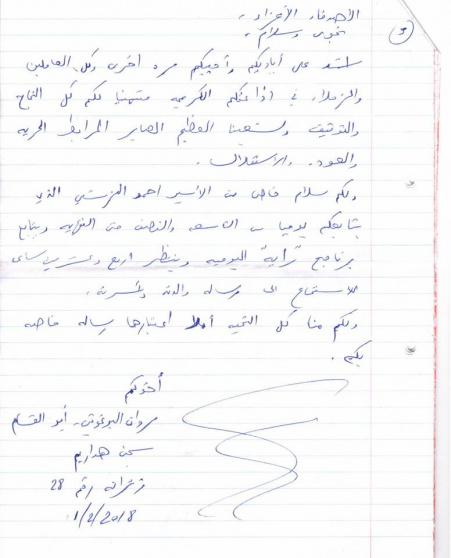 ③
الأصدقاء الأعزاء..
نجوى وسلام..
أشد على أياديكم وأحييكم مرة اخرى وكل العاملين
والزملاء في اذاعتكم الكريمه متمنيا لكم كل النجاح
والتوفيق ولشعبنا العظيم الصابر المرابط الحريه
والعوده والأستقلال.
ولكم سلام خاص من الأسير احمد الذي
يتابعكم يوميا حتى النهايه ويتابع
برنامج "راية" اليوميه وينتظر اربع وعشرين ساعه
للاستماع الى رساله والدته
ولكم منا كل التحيه أملا اعتبارها رساله خاصه
بكم.
أخوكم
مروان البرغوثي - أبو القسام
سجن هداريم
زنزانه رقم 28
1/2/2018